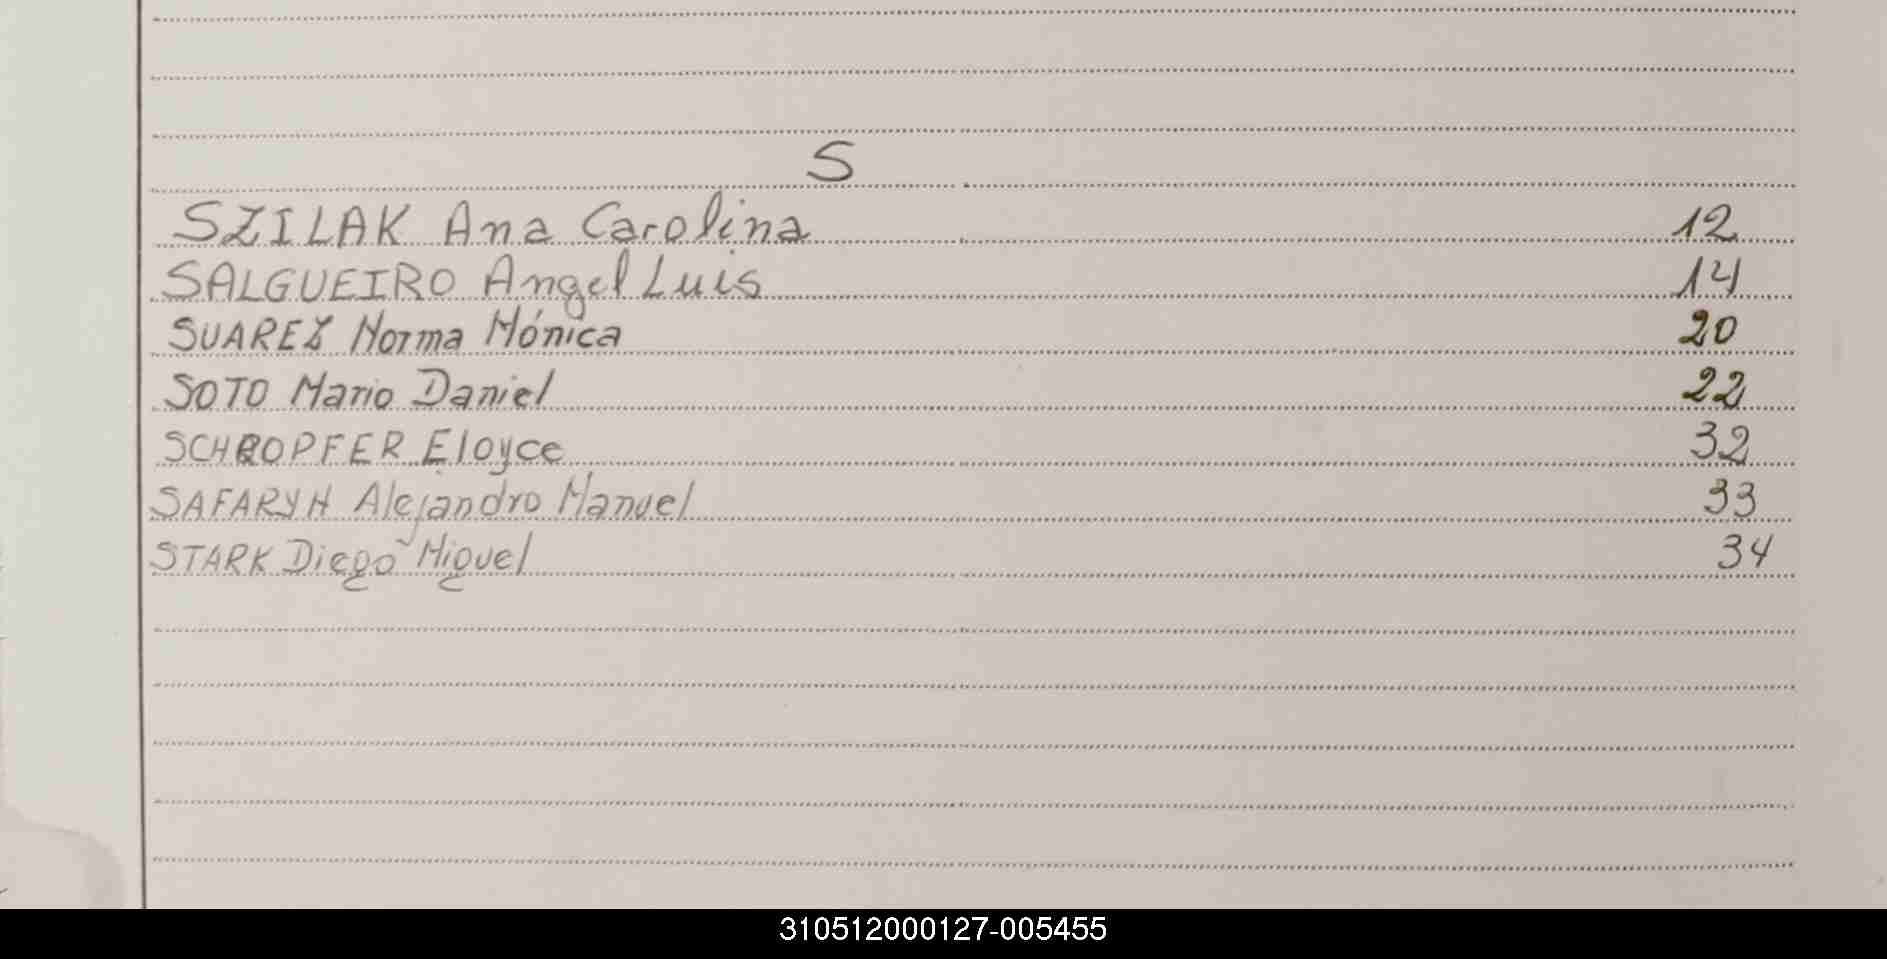 S
SZILAK Ana Carolina 12
SALGUEIRO Angel Luis 14
SUAREZ Norma Mónica 20
SOTO Mario Daniel 22
SCHROPFER Eloyce 32
SAFARYN Alejandro Manuel 33
STARK Diego Miguel 34
310512000127-005455